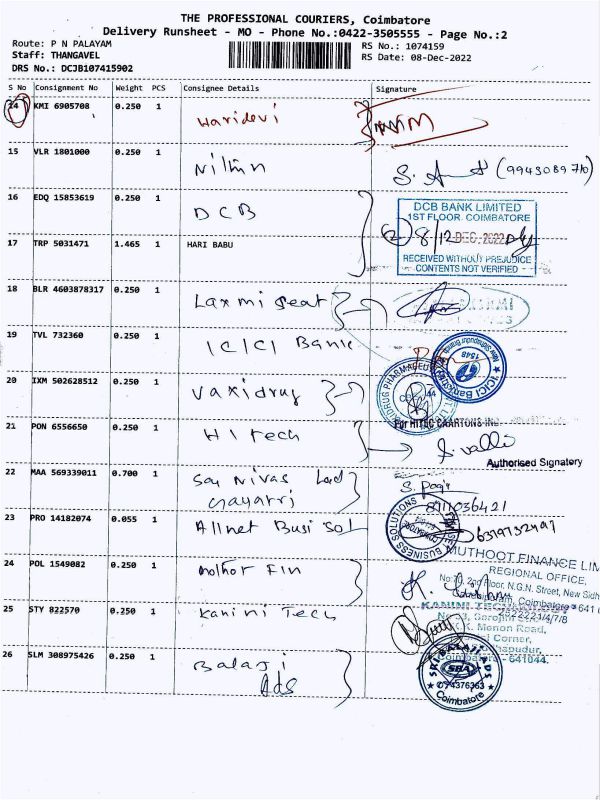 THE PROFESSIONAL COURIERS, Coimbatore
Delivery Runsheet - MO - Phone No.:0422-3505555 - Page No.:2
Route: P N PALAYAM RS No.: 1074159
Staff: THANGAVEL RS Date: 08-Dec-2022
DRS No.: DCJB107415902
S No Consignment No Weight PCS Consignee Details Signature
14 KMI 6905708 0.250 1 Haridevi
15 VLR 1801000 0.250 1 Nithin (9943089710)
16 EDQ 15853619 0.250 1 DCB
DCB BANK LIMITED
1ST FLOOR. COIMBATORE
8/12 DEC 2022
RECEIVED WITHOUT PREJUDICE
CONTENTS NOT VERIFIED
17 TRP 5031471 1.465 1 HARI BABU
18 BLR 4603878317 0.250 1 Laxmi Seat
19 TVL 732360 0.250 1 ICICI Bank
ICICI Bank
1548
20 IXM 502628512 0.250 1 Vaxidrug
21 PON 6556650 0.250 1 Hitech
For HITEC CAARTONS INC
Authorised Signatory
22 MAA 569339011 0.700 1 Sri Nivas
Gayatri
23 PRO 14182074 0.055 1 Allnet Busi Sol
BUSINESS SOLUTIONS
6319732497
24 POL 1549082 0.250 1 Fin
MUTHOOT FINANCE LIM
REGIONAL OFFICE,
2nd Floor, N.G.N. Street, New Sidh
Coimbatore - 641
25 STY 822570 0.250 1 Kanini Tech
KANINI
Menon Road,
Corner,
Coimbatore - 641044.
26 SLM 308975426 0.250 1 Balaji
Ads
SRI BALAJI ADS
SBA
74376363
Coimbatore